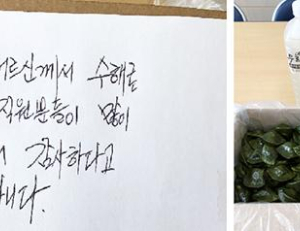 어르신께서 수해로
직원분들이 많이
감사하다고
니다.